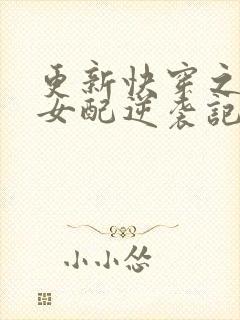 更新快穿之
女配逆袭記
小小怂